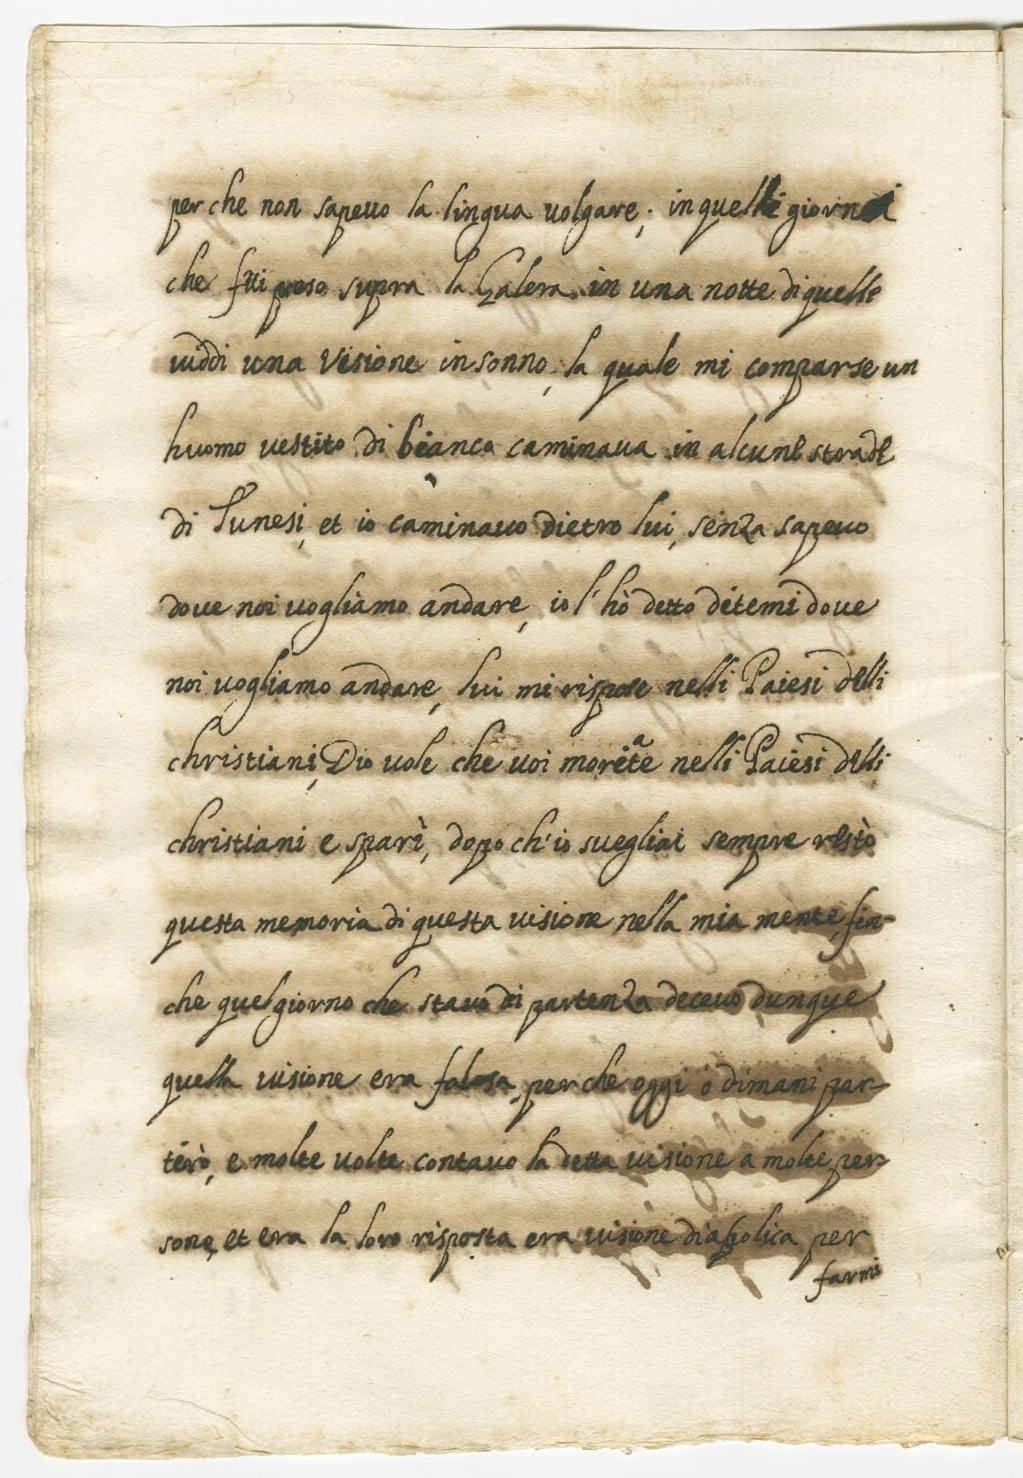 perche non sapeuo la lingua uolgare, in quelli giorni
che fui preso supra la Galera in una notte di quelle
uiddi una Visione in sonno, la quale mi comparse un
huomo vestito di bianco caminaua in alcune strade
di Tunesi, et io caminauo dietro lui, senza sapeuo
dove noi uogliamo andare, io l'hò detto ditemi dove
noi uogliamo andare, lui mi rispose nelli Paiesi delli
christiani, Dio uole che uoi morite nelli Paiesi delli
christiani e sparì, dopo ch'io suegliai sempre restò
questa memoria di questa uisione nella mia mente, fin-
che quel giorno che stauo di partenza deceuo dunque
quella uisione era falsa, perche oggi ò dimani par-
terò, e molte uolte contauo la detta uisione a molte per-
sone, et era la loro risposta era uisione diabolica per
farmi